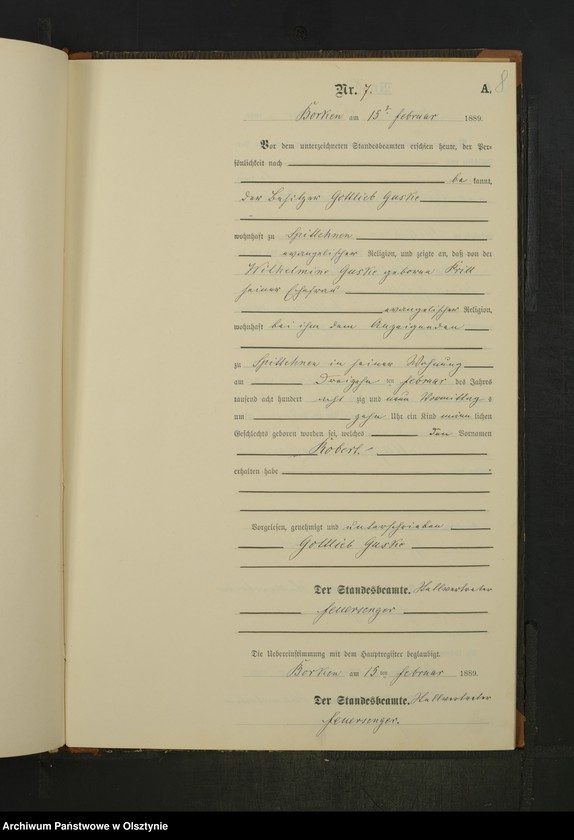 8
Nr. 7. A.
Borken am 15 Februar 1889.
Vor dem unterzeichneten Standesbeamten erschien heute, der Per-
sönlichkeit nach
be kannt,
der Besitzer Gottlieb Guske
wohnhaft zu Spittehnen
evangelischer Religion, und zeigte an, daß von der
Wilhelmine Guske geborene Krill
seiner Ehefrau
evangelischer Religion,
wohnhaft bei ihm dem Anzeigenden
zu Spittehnen in seiner Wohnung
am Dreizehn ten Februar des Jahres
tausend acht hundert acht zig und neun Vormittags
um zehn Uhr ein Kind männlichen
Geschlechts geboren worden sei, welches den Vornamen
Robert
erhalten habe
Vorgelesen, genehmigt und unterschrieben
Gottlieb Guske
Der Standesbeamte. Stellvertreter
Feuersenger
Die Uebereinstimmung mit dem Hauptregister beglaubigt.
Borken am 15ten Februar 1889.
Der Standesbeamte. Stellvertreter
Feuersenger.
Archiwum Państwowe w Olsztynie